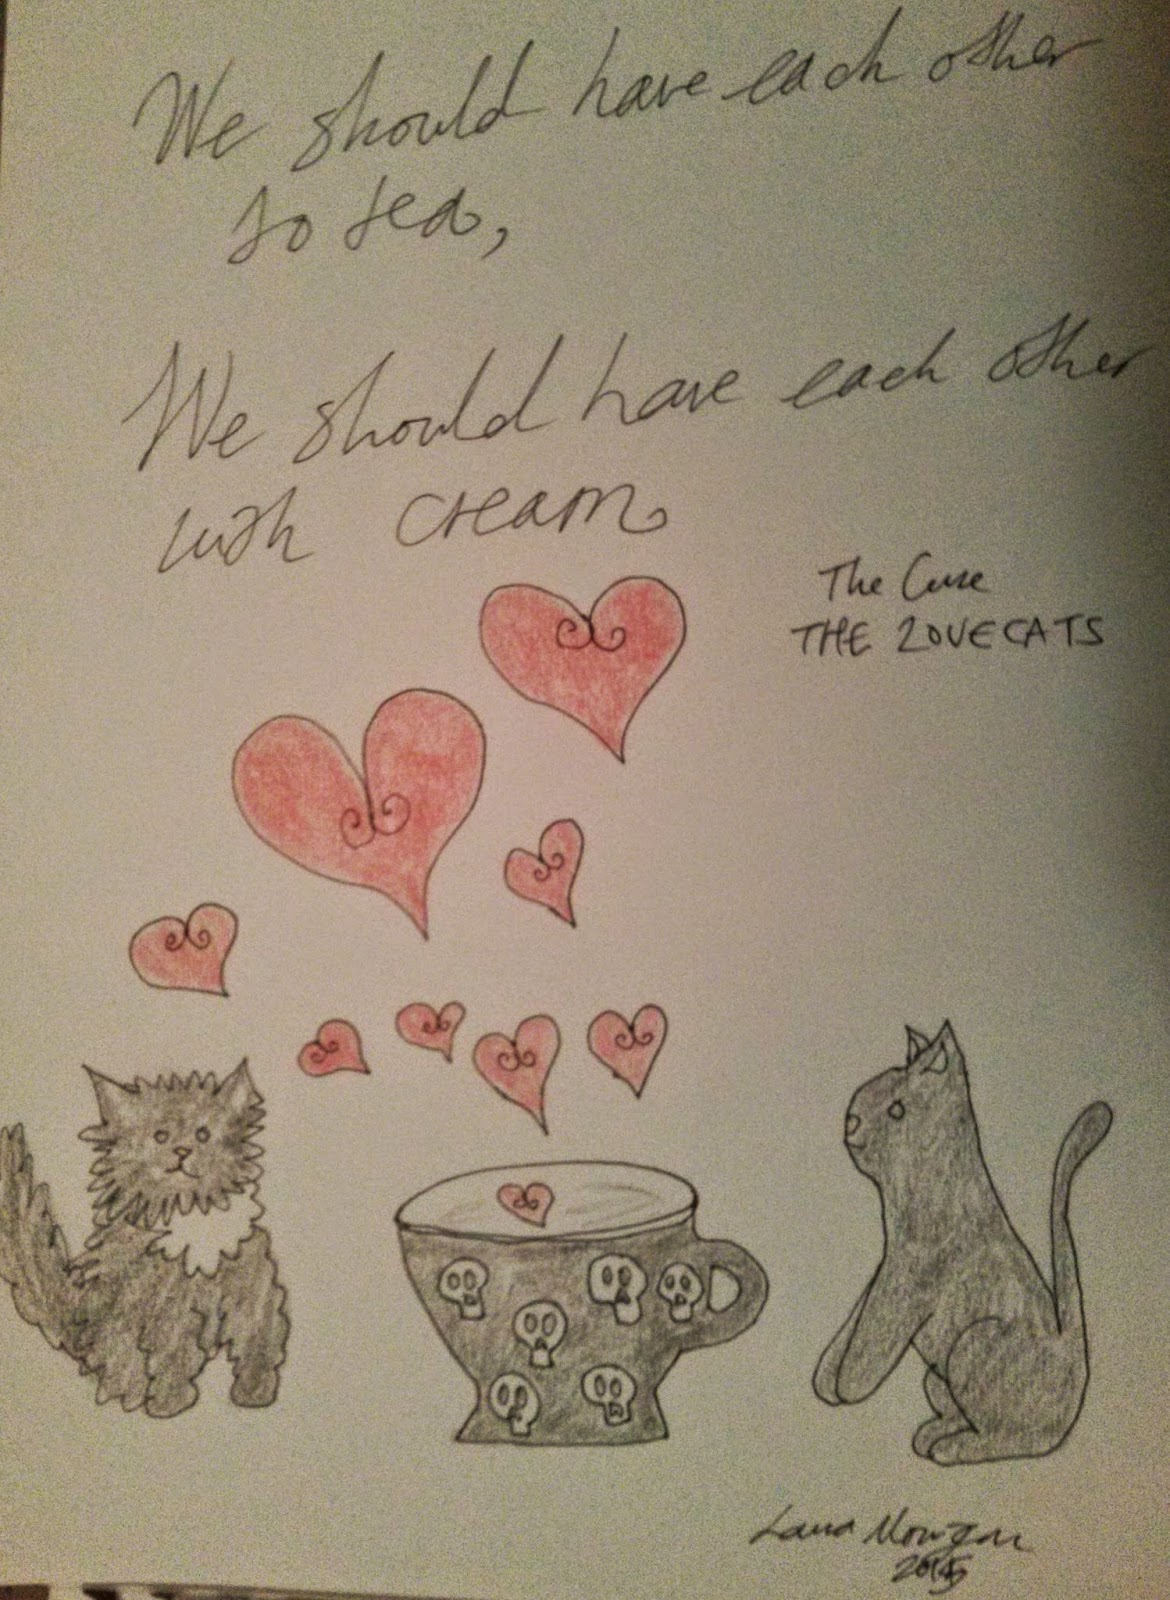 We should have each other
to tea,
We should have each other
with cream
The Cure
THE LOVECATS
Laura Morgan
2015